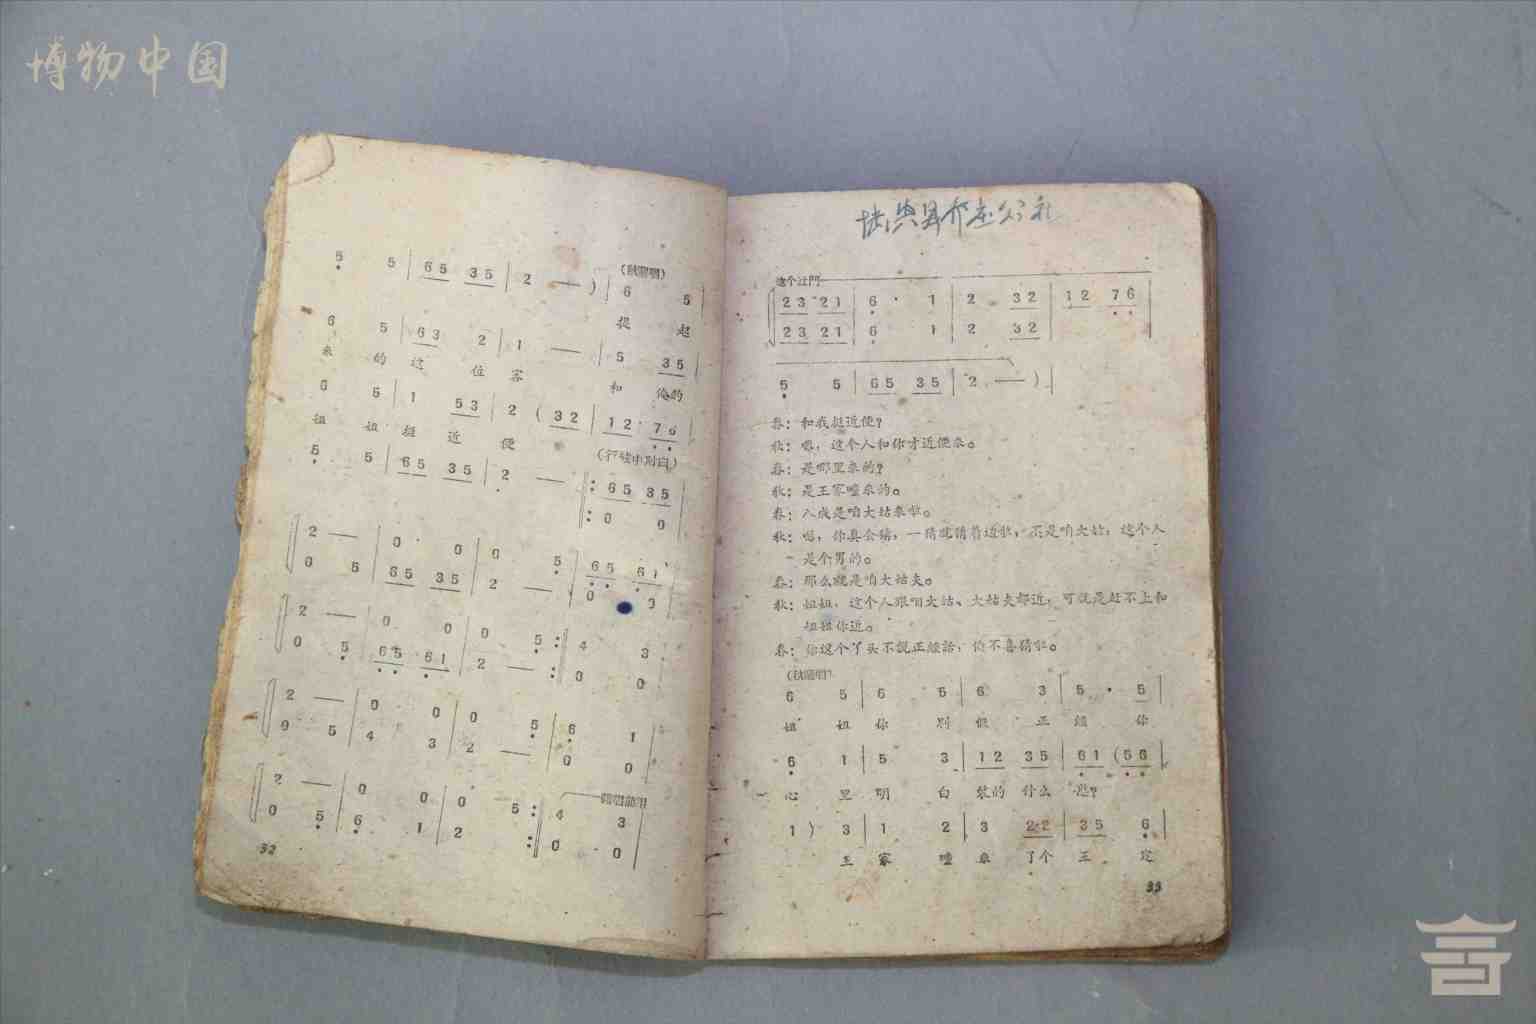 博物中国
5 5 65 35 2 — )
6 5
提 起
6 5 63 2 1 — 5 35
来 的 这 位 客 和 俺的
6 5 1 53 2 ( 32 12 76
姐 姐 挺 近 便
5 5 65 35 2 — 65 35
0 0
2 — 0 0 0 5 65 61
0 5 65 35 2 — 0 0
2 — 0 0 0 5 4 3
0 5 65 61 2 — 0 0
2 — 0 0 0 5 6 1
9 5 4 3 2 — 0 0
2 — 0 0 0 5 4 3
0 5 6 1 2 0 0
32
这个过门
23 21 6 · 1 2 32 12 76
23 21 6 1 2 32
5 5 65 35 2 — )
春：和我挺近便？
秋：嗯，这个人和你才近便来。
春：是哪里来的？
秋：是王家疃来的。
春：八成是咱大姑来啦。
秋：嗯，你真会猜，一猜就猜着边啦，不是咱大姑，这个人
是个男的。
春：那么就是咱大姑夫。
秋：姐姐，这个人跟咱大姑、大姑夫都近，可就是赶不上和
姐姐你近。
春：你这个丫头不說正經話，俺不喜猜啦。
6 5 6 5 6 3 5 · 5
姐 姐 你 别 假 正 經 你
6 1 5 3 12 35 61 (56
心 里 明 白 装的 什么 憨？
1 ) 3 1 2 3 22 35 6
王 家 疃 来 了个 王 定
33